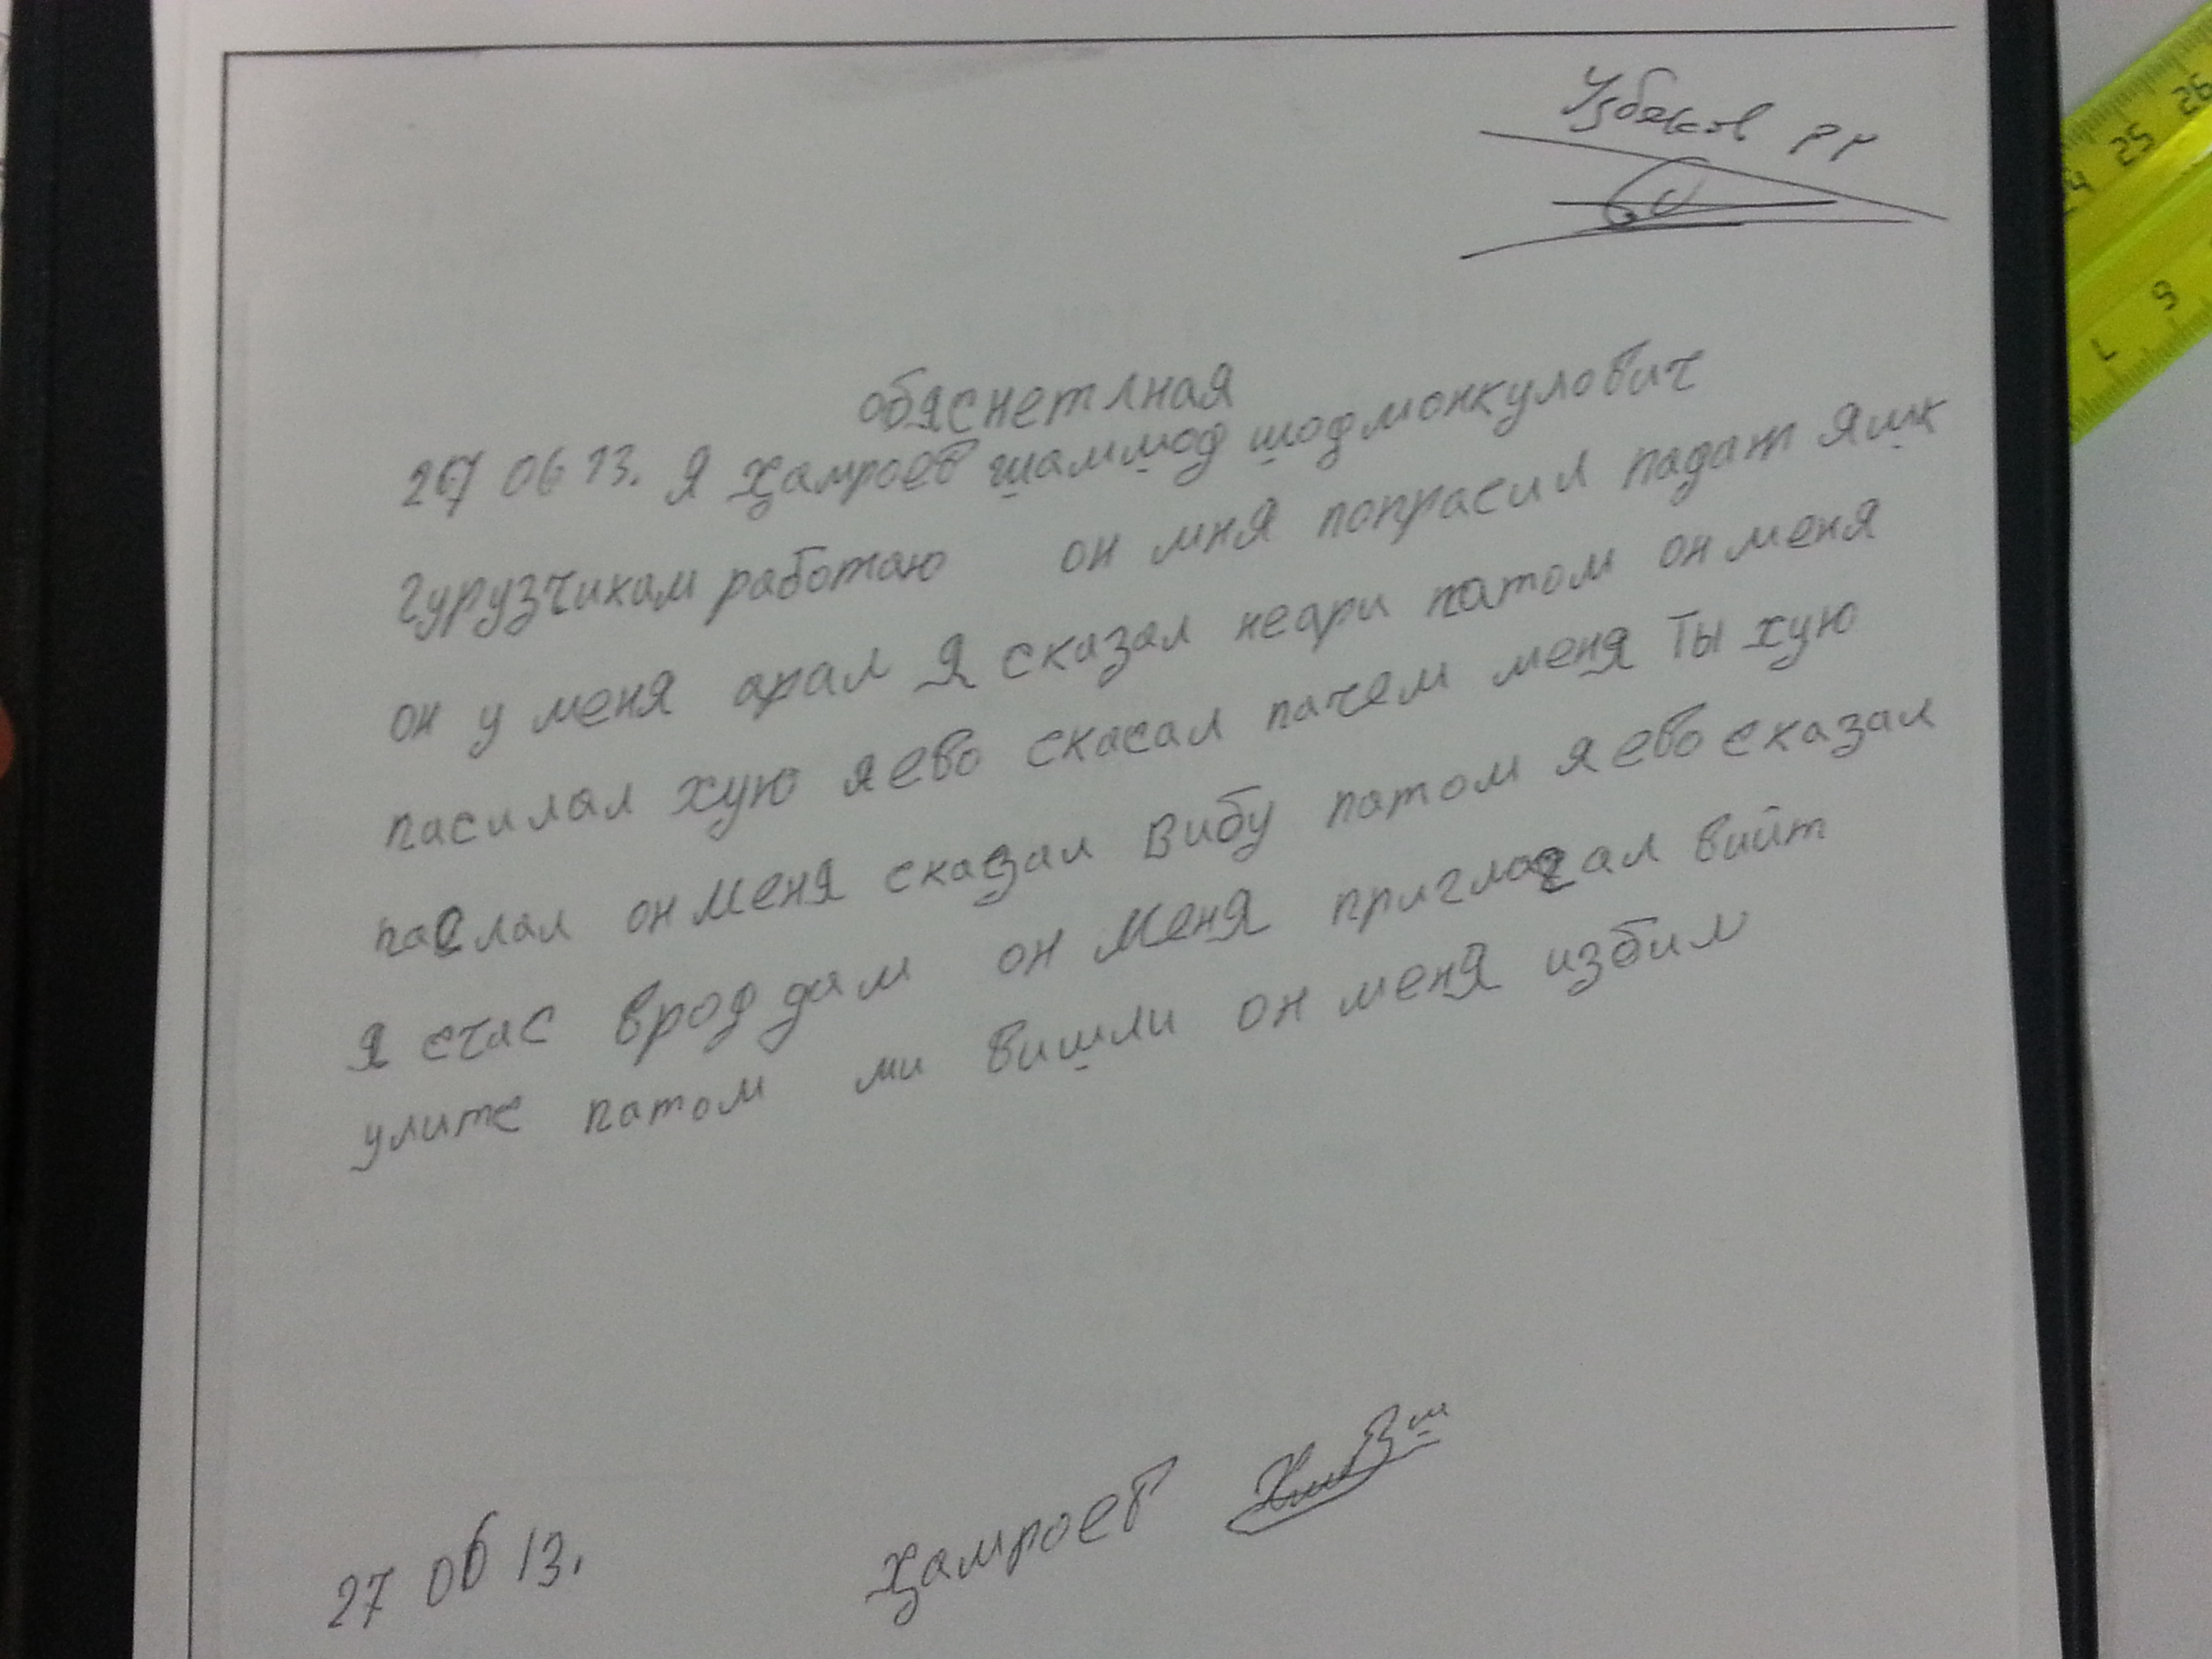 Узбеков РР
обяснетлная
27 06 13. Я Ҳамроев шаммод шодмонкулович
гурузчикам работаю он мня попрасил падат яшк
он у меня арал Я сказал неари патом он меня
пасилал хую я ево скасал пачем меня Ты хую
паслал он меня сказал вибу патом я ево сказал
Я счас врод дам он меня пригласал вийт
улите патом ми вишли он меня избил
27 06 13. Ҳамроев